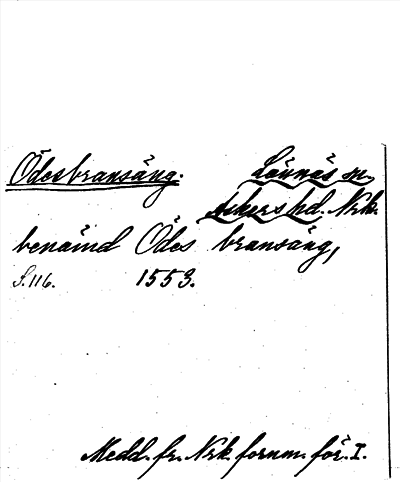 Ödesbransäng. Lännäs sn.
Askers hd. Nrk.
benämd Ödes bransäng,
S. 116. 1553.
Medd. fr. Nrk. fornm. för. I.